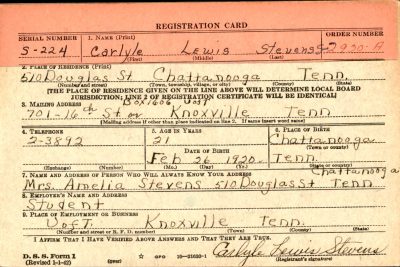 REGISTRATION CARD
SERIAL NUMBER 1. NAME (Print) ORDER NUMBER
S-224 Carlyle Lewis Stevens 2920-A
(First) (Middle) (Last)
2. PLACE OF RESIDENCE (Print)
510 Douglas St Chattanooga Tenn.
(Number and street) (Town, township, village, or city) (County) (State)
[THE PLACE OF RESIDENCE GIVEN ON THE LINE ABOVE WILL DETERMINE LOCAL BOARD
JURISDICTION; LINE 2 OF REGISTRATION CERTIFICATE WILL BE IDENTICAL]
3. MAILING ADDRESS Box 1606 UofT
701-16th St or Knoxville Tenn
[Mailing address if other than place indicated on line 2. If same insert word same]
4. TELEPHONE 5. AGE IN YEARS 6. PLACE OF BIRTH
2-3892 21 Chattanooga
DATE OF BIRTH (Town or county)
Feb 26 1920 Tenn.
(Exchange) (Number) (Mo.) (Day) (Yr.) (State or country)
7. NAME AND ADDRESS OF PERSON WHO WILL ALWAYS KNOW YOUR ADDRESS Chattanooga
Mrs. Amelia Stevens 510 Douglas St Tenn
8. EMPLOYER'S NAME AND ADDRESS
Student
9. PLACE OF EMPLOYMENT OR BUSINESS
U of T. Knoxville Tenn.
(Number and street or R. F. D. number) (Town) (County) (State)
I AFFIRM THAT I HAVE VERIFIED ABOVE ANSWERS AND THAT THEY ARE TRUE.
D. S. S. Form 1 GPO 16-21630-1 Carlyle Lewis Stevens
(Revised 1-1-42) (Registrant's signature)